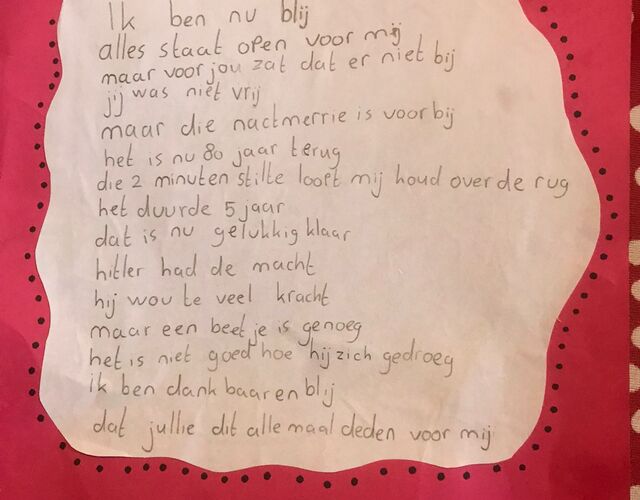 Ik ben nu blij
alles staat open voor mij
maar voor jou zat dat er niet bij
jij was niet vrij
maar die nactmerrie is voorbij
het is nu 80 jaar terug
die 2 minuten stilte loopt mij houd over de rug
het duurde 5 jaar
dat is nu gelukkig klaar
hitler had de macht
hij wou te veel kracht
maar een beetje is genoeg
het is niet goed hoe hij zich gedroeg
ik ben dankbaar en blij
dat jullie dit allemaal deden voor mij